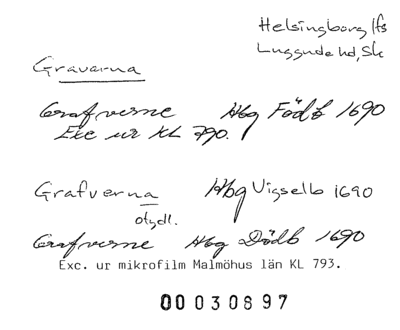 Helsingborg lfs
Luggude hd, Sk
Gravarna
Grafverne Hbg Födb 1690
Exc ur KL 790.
Grafverna Hbg Vigselb 1690
otydl.
Grafverne Hbg Dödb 1690
Exc. ur mikrofilm Malmöhus län KL 793.
00030897